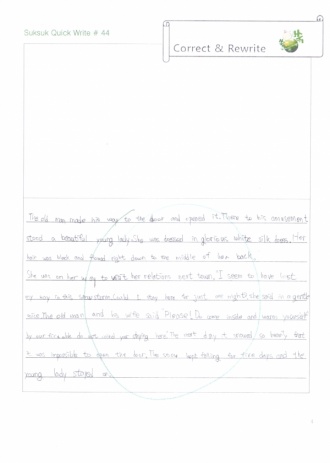 Suksuk Quick Write # 44
Correct & Rewrite
The old man made his way to the door and opened it. There to his amazement
stand a beautiful young lady. She was dressed in glorious white silk dress. Her
hair was black and flowed right down to the middle of her back.
She was on her way to visit her relatives next town. I seem to have lost
my way in this snowstorm. Could I stay here to just one night? she said in a gentle
voice. The old man and his wife said Please! Do come inside and warm yourself
by our fire. We do not mind your staying here. The next day it snowed so heavily that
it was impossible to open the door. The snow kept falling for five days and the
young lady stayed on.